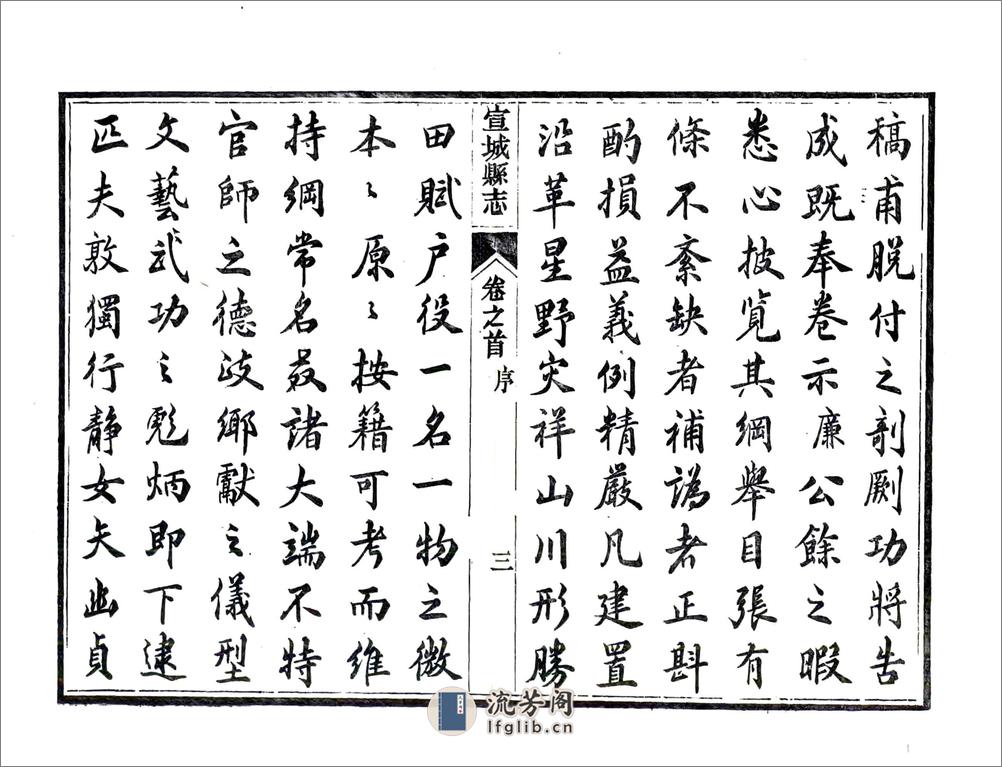 稿甫脫付之剞劂功將告
成既奉卷示廉公餘之暇
悉心披覽其綱舉目張有
條不紊缺者補譌者正斟
酌損益義例精嚴凡建置
沿革星野灾祥山川形勝
宣城縣志
卷之首
序
三
田賦户役一名一物之微
本〻原〻按籍可考而維
持綱常名教諸大端不特
官師之德政鄉獻之儀型
文藝武功之彪炳即下逮
匹夫敦獨行靜女矢幽貞
流芳阁
lfglib.cn